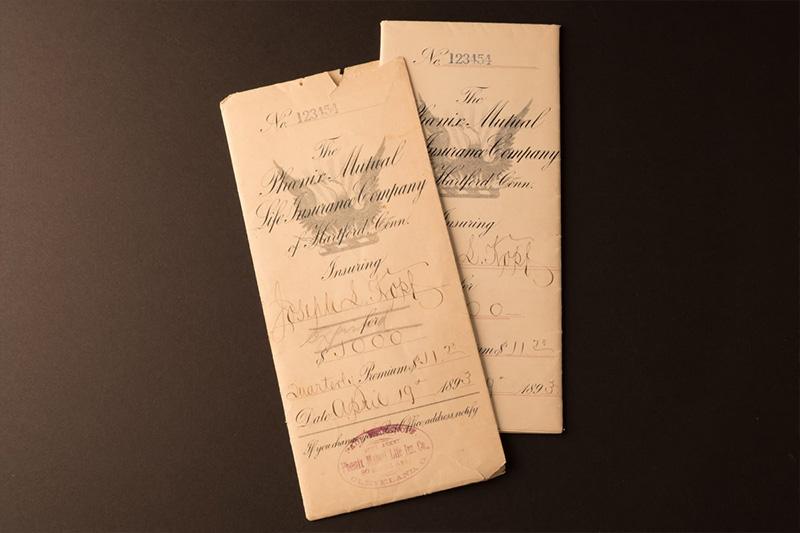 No. 123454
The
Phœnix Mutual
Life Insurance Company
of Hartford Conn.
Insuring
Joseph L. Kopf
for
$1000
Quarterly Premium $11 25
Date April 19th 1893
If you change your Post Office address, notify
Phœnix Mutual Life Ins. Co.
CLEVELAND, O.
No. 123454
The
Phœnix Mutual
Insurance Company
Hartford Conn.
Insuring
L. Kopf
for
00
um $11 25
1893